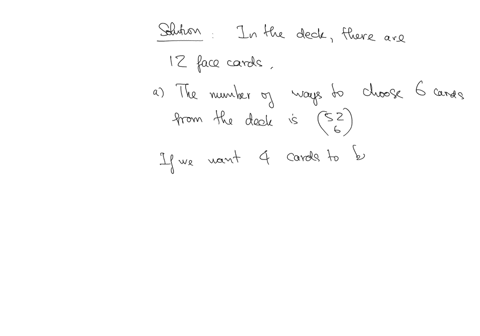 Solution : In the deck, there are
12 face cards.
a) The number of ways to choose 6 cards
from the deck is (52
6)
If we want 4 cards to b